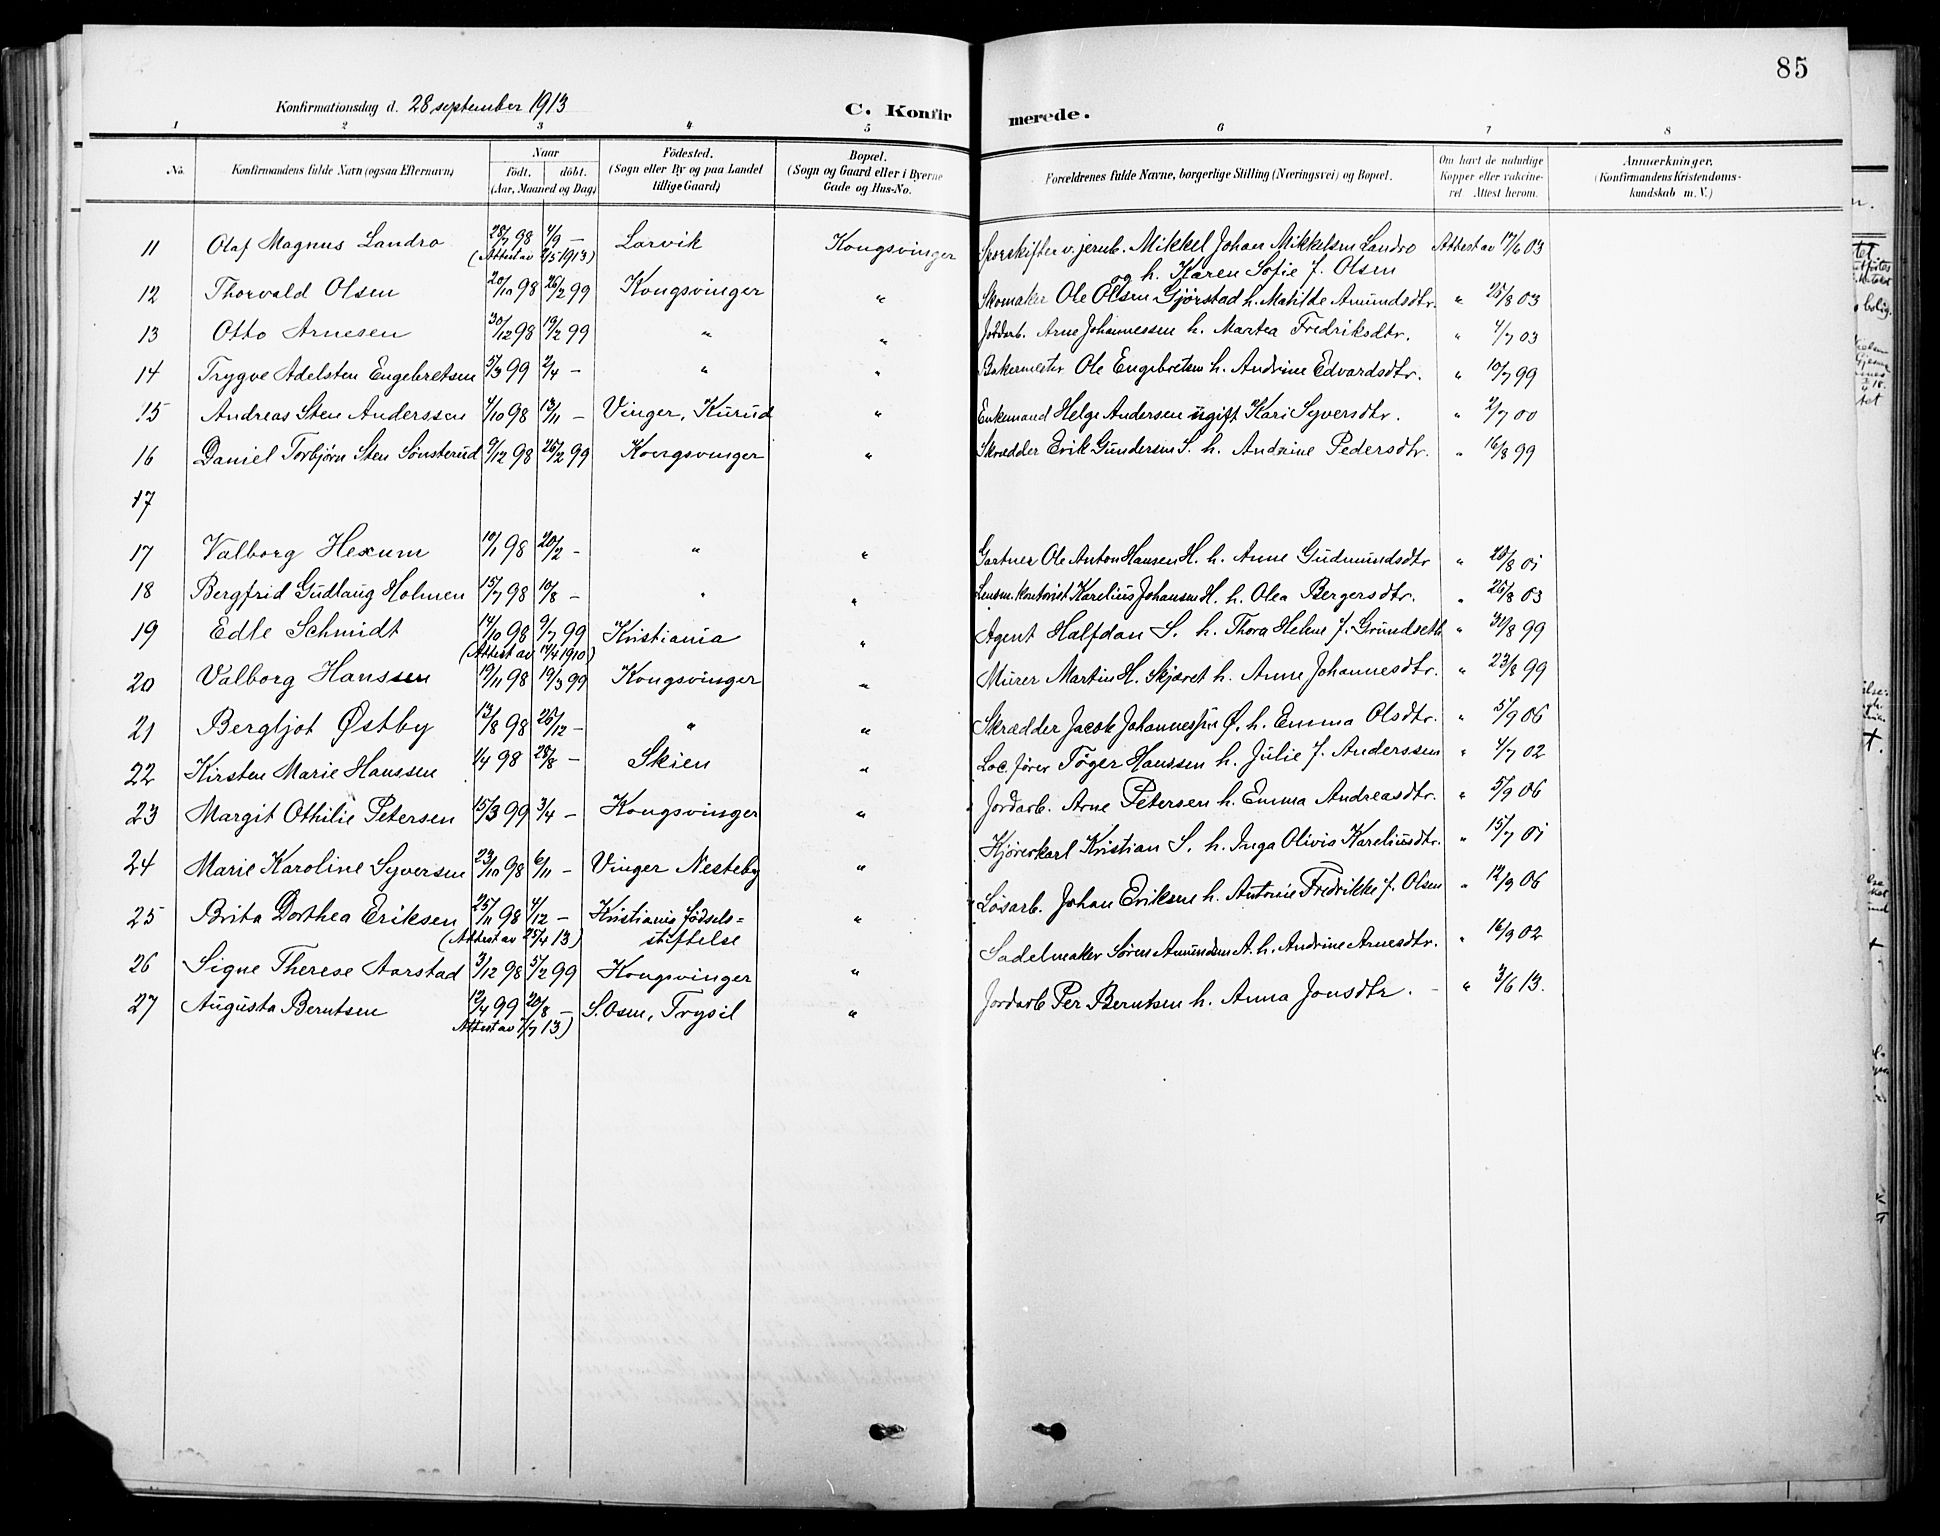 85
Konfirmationsdag d. 28 september 1913 C. Konfir merede.
1 2 3 4 5 6 7 8
No. Konfirmandens fulde Navn (ogsaa Efternavn) Naar Födt. döbt. (Aar, Maaned og Dag) Födested. (Sogn eller By og paa Landet tillige Gaard) Bopæl. (Sogn og Gaard eller i Byerne Gade og Hus-No. Forældrenes fulde Navne, borgerlige Stilling (Næringsvei) og Bopæl. Om havt de naturlige Kopper eller vakcineret. Attest herom. Anmærkninger. (Konfirmandens Kristendomskundskab m. V.)
11 Olaf Magnus Landro 28/7 98 4/9 – Larvik Kongsvinger Sporskifter v. jernb. Mikkel Johan Mikkelsen Landro Attest av 17/6 03
(Attest av 2/5 1913) og h. Karen Sofie f. Olsen
12 Thorvald Olsen 20/10 98 26/2 99 Kongsvinger " Skomaker Ole Olsen Gjørstad h. Matilde Amundsdtr. " 25/8 03
13 Otto Arnesen 30/12 98 19/2 99 " " Jordarb. Arne Johannessen h. Martea Fredriksdtr. " 4/7 03
14 Trygve Adelsten Engebretsen 5/3 99 2/4 – " " Bakermester Ole Engebretsen h. Andrine Edvardsdtr. " 10/7 99
15 Andreas Sten Anderssen 4/10 98 13/11 – Vinger, Kurud " Enkemand Helge Andersen ugift Kari Syversdtr. " 2/7 00
16 Daniel Torbjørn Sten Sønsterud 9/12 98 26/2 99 Kongsvinger " Skrædder Erik Gundersen S. h. Andrine Pedersdtr. " 16/8 99
17
17 Valborg Hexum 10/1 98 20/2 – " " Gartner Ole Anton Hansen H. h. Anne Gudmundsdtr " 28/8 01
18 Bergfrid Gudlaug Holmen 15/7 98 10/8 – " " Lensm. kontorist Karelius Johansen H. h. Olea Bergersdtr. " 26/8 03
19 Edle Schmidt 14/10 98 9/7 99 Kristiania " Agent Halfdan S. h. Thora Helene f. Grundseth " 30/8 99
(Attest av 14/4 1910)
20 Valborg Hanssen 19/11 98 19/3 99 Kongsvinger " Murer Martin H. Skjæret h. Anne Johannesdtr. " 23/8 99
21 Bergljot Østby 13/8 98 26/12 – " " Skrædder Jacob Johannessen Ø. h. Emma Olsdtr. " 5/9 06
22 Kirsten Marie Hanssen 1/4 98 28/8 – Skien " Loc. fører Tøger Hanssen h. Julie f. Anderssen " 4/7 02
23 Margit Othilie Petersen 15/3 99 3/4 – Kongsvinger " Jordarb. Arne Petersen h. Emma Andreasdtr. " 5/9 06
24 Marie Karoline Syversen 23/10 98 6/11 – Vinger Nesteby " Kjørerkarl Kristian S. h. Inga Olivia Kareliusdtr. " 15/7 01
25 Brita Dorthea Eriksen 25/11 98 4/12 – Kristiania fødsels= " Løsarb. Johan Eriksen h. Antonie Fredrikke f. Olsen " 12/9 06
(Attest av 25/4 13) stiftelse
26 Signe Therese Aarstad 3/12 98 5/2 99 Kongsvinger " Sadelmaker Søren Amundsen A. h. Andrine Arnesdtr. " 16/9 02
27 Augusta Berntsen 12/4 99 20/8 – S. Osen, Trysil " Jordarb Per Berntsen h. Anna Jonsdtr. – " 3/6 13.
Attest av 7/7 13)